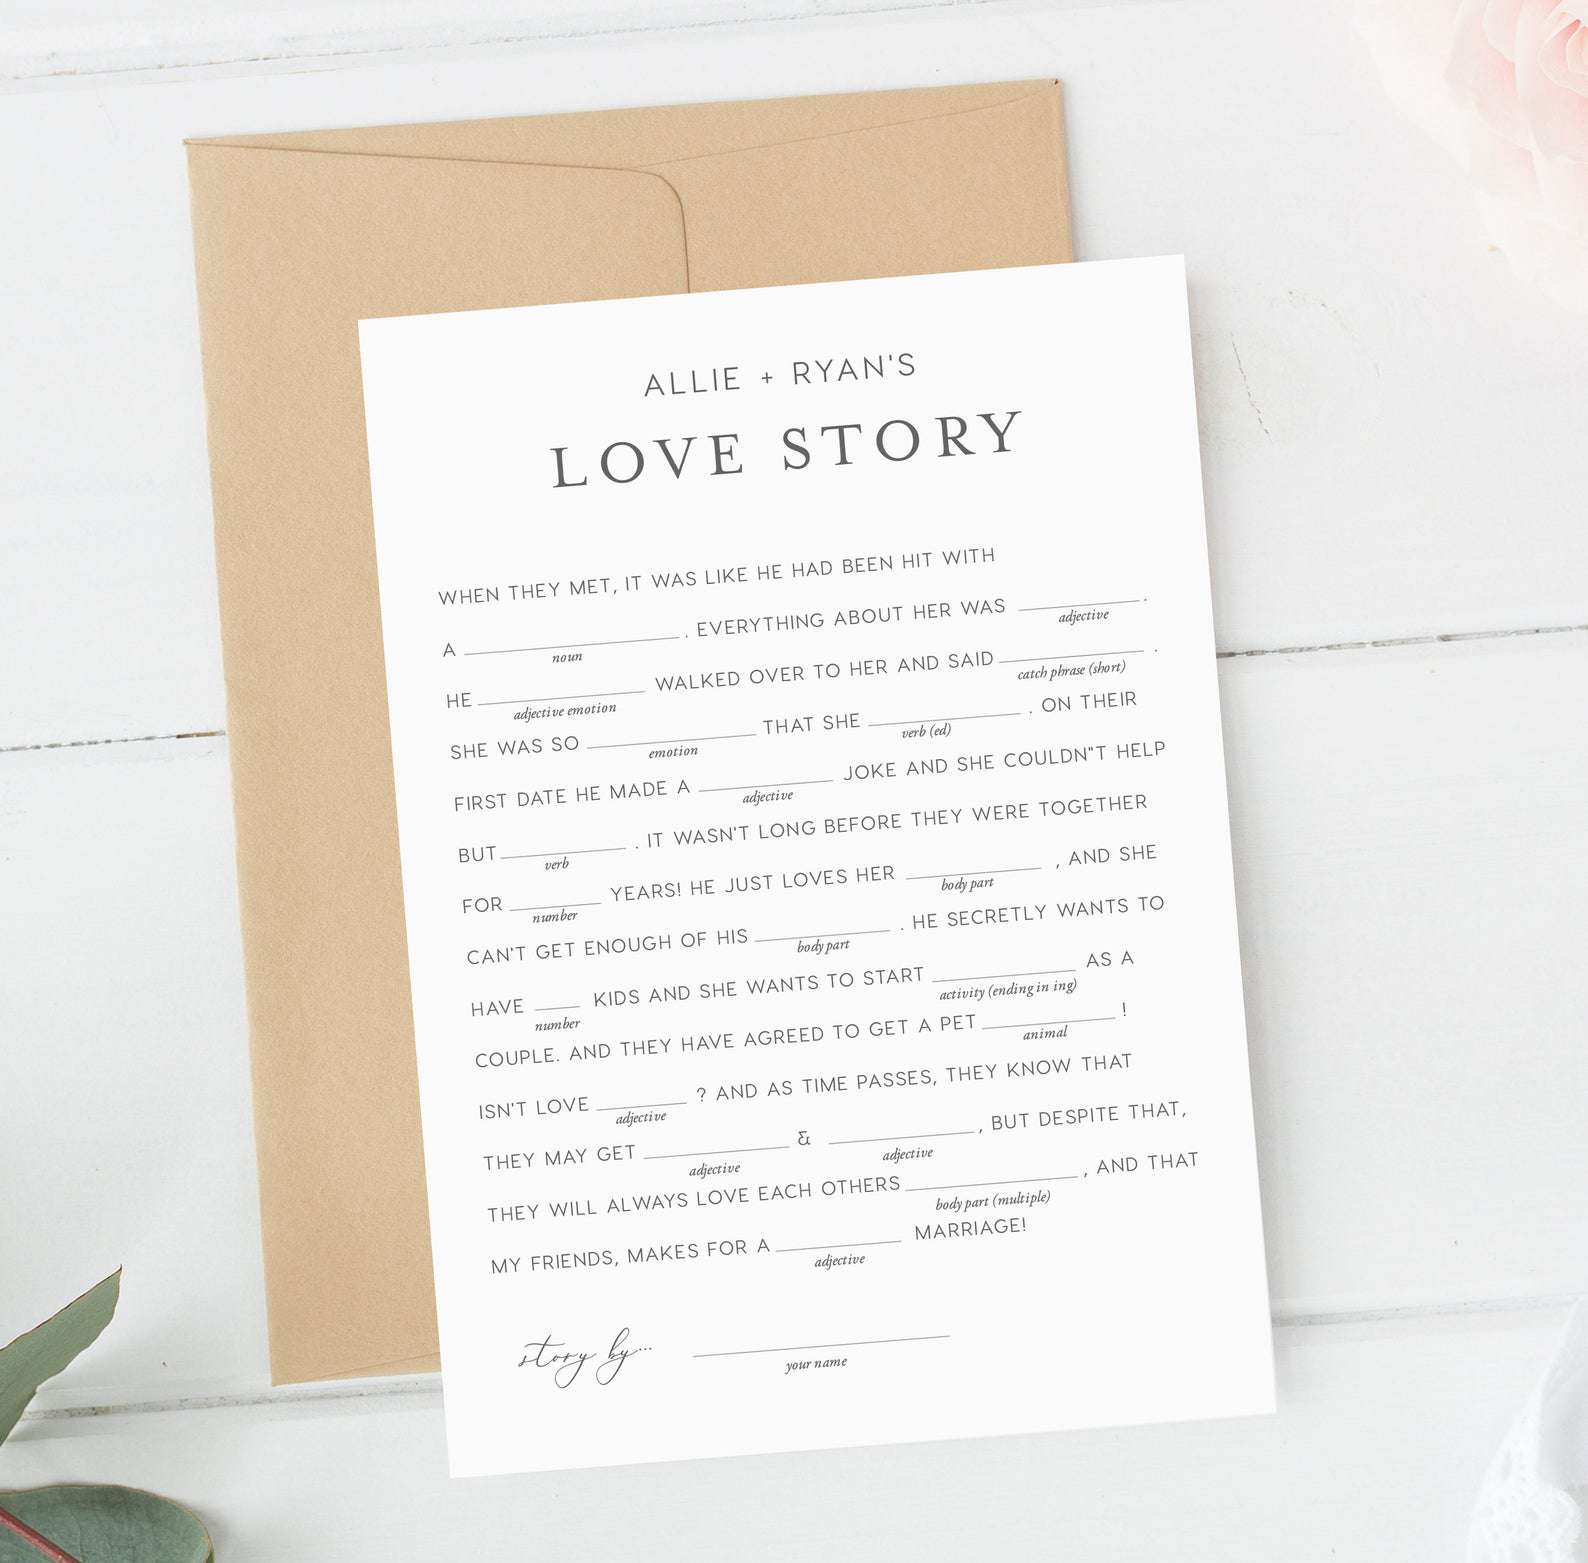 ALLIE + RYAN'S
LOVE STORY
WHEN THEY MET, IT WAS LIKE HE HAD BEEN HIT WITH
A ____________. EVERYTHING ABOUT HER WAS ________.
noun adjective
HE ____________ WALKED OVER TO HER AND SAID ____________.
adjective emotion catch phrase (short)
SHE WAS SO ____________ THAT SHE ____________. ON THEIR
emotion verb (ed)
FIRST DATE HE MADE A __________ JOKE AND SHE COULDN"T HELP
adjective
BUT __________. IT WASN'T LONG BEFORE THEY WERE TOGETHER
verb
FOR ________ YEARS! HE JUST LOVES HER __________, AND SHE
number body part
CAN'T GET ENOUGH OF HIS __________. HE SECRETLY WANTS TO
body part
HAVE ____ KIDS AND SHE WANTS TO START ____________ AS A
number activity (ending in ing)
COUPLE. AND THEY HAVE AGREED TO GET A PET __________!
animal
ISN'T LOVE ________? AND AS TIME PASSES, THEY KNOW THAT
adjective
THEY MAY GET ____________ & ____________, BUT DESPITE THAT,
adjective adjective
THEY WILL ALWAYS LOVE EACH OTHERS ______________, AND THAT
body part (multiple)
MY FRIENDS, MAKES FOR A __________ MARRIAGE!
adjective
story by... ____________________
your name